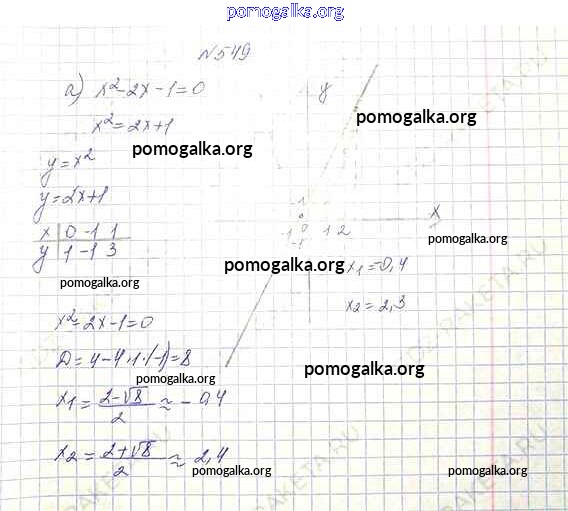 pomogalka.org
№549
а) x²-2x-1=0
x²=2x+1
y=x²
y=2x+1
x 0 -1 1
y 1 -1 3
x²-2x-1=0
D=4-4·1·(-1)=8
x₁=(2-√8)/2≈-0,4
x₂=(2+√8)/2≈2,4
y
pomogalka.org
pomogalka.org
x
1
-1 0 1 2
-1
pomogalka.org
pomogalka.org
x₁=-0,4
pomogalka.org
x₂=2,3
pomogalka.org
pomogalka.org
pomogalka.org
pomogalka.org
RAKETA.RU